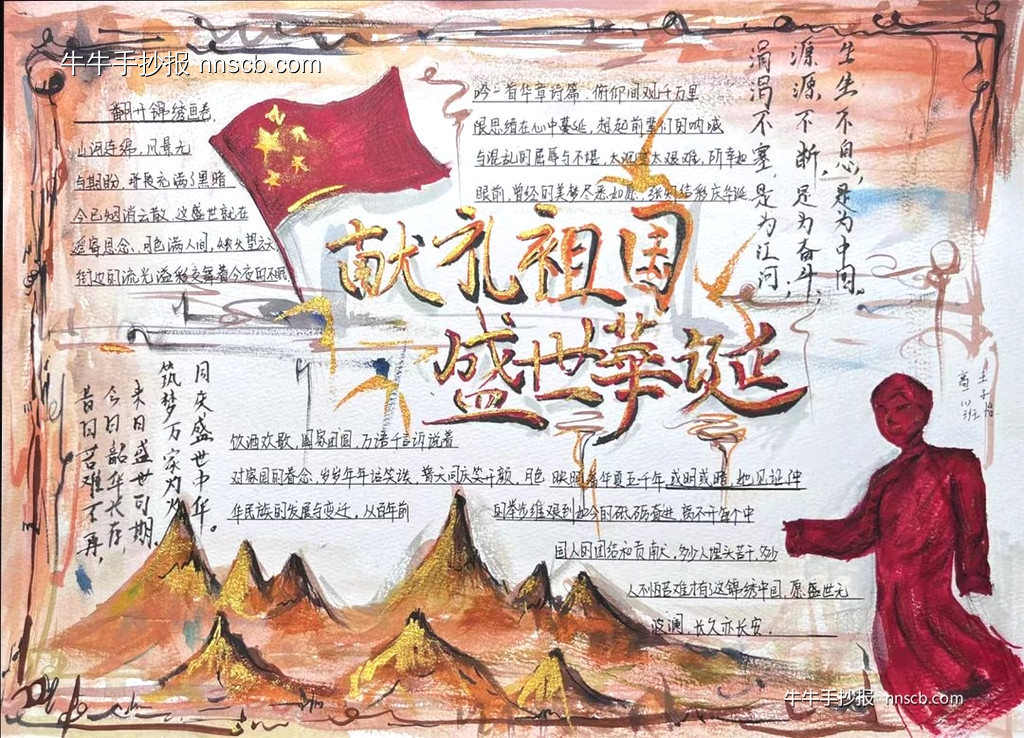 牛牛手抄报 nnscb.com
翻开锦绣画卷,
山河连绵, 风景无
与期盼, 充满了黑暗
今已烟消云散, 这盛世就在
遥寄思念, 月色满人间,
街边的流光溢彩交舞着今夜的不眠
吟一首华章诗篇, 俯仰间观千万里
思绪在心中蔓延, 想起前辈们的呐喊
与混乱的屈辱与不堪, 太沉重太艰难, 所幸如
眼前, 曾经的美梦尽悉如愿, 张灯结彩庆华诞
生生不息,是为中国。
源源不断,是为奋斗;
涓涓不塞,是为江河;
献礼祖国
盛世華诞
王子怡
高一(1)班
月庆盛世中华。
筑梦万家灯火
来日盛世可期.
今日韶华长存,
昔日苦难不再,
饮酒欢歌, 国家团圆, 万语千言诉说着
对家园的眷念, 岁岁年年话笑谈, 普天同庆笑开颜, 月色 映照着华夏五千年, 或明或暗, 她见证中
华民族的发展与变迁, 从百年前 的举步维艰到如今的砥砺奋进, 离不开每个中
国人的团结和贡献, 多少人埋头苦干, 多少
人不怕苦难才有了这锦绣中国, 愿盛世无
波澜, 长久亦长安.
牛牛手抄报 nnscb.com